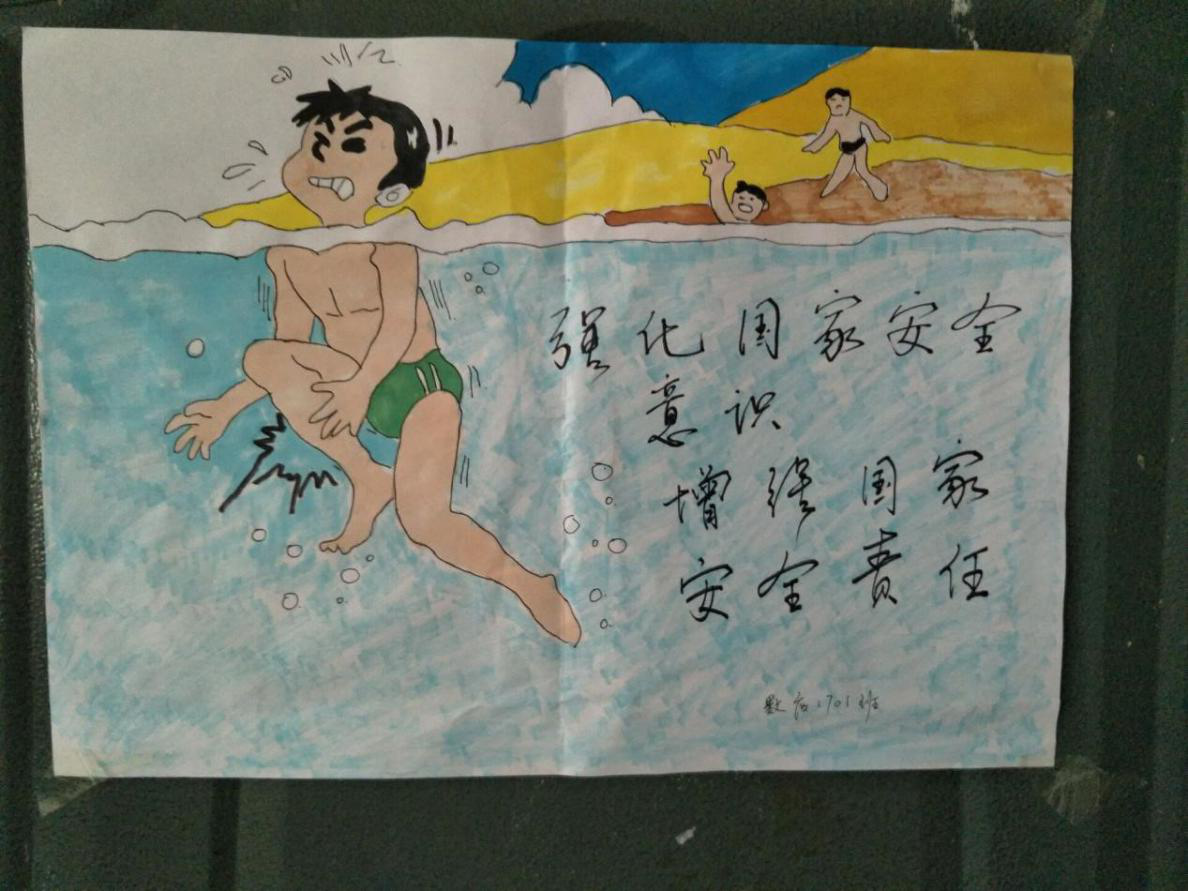 强化国家安全
意识
增强国家
安全责任
数应1701班